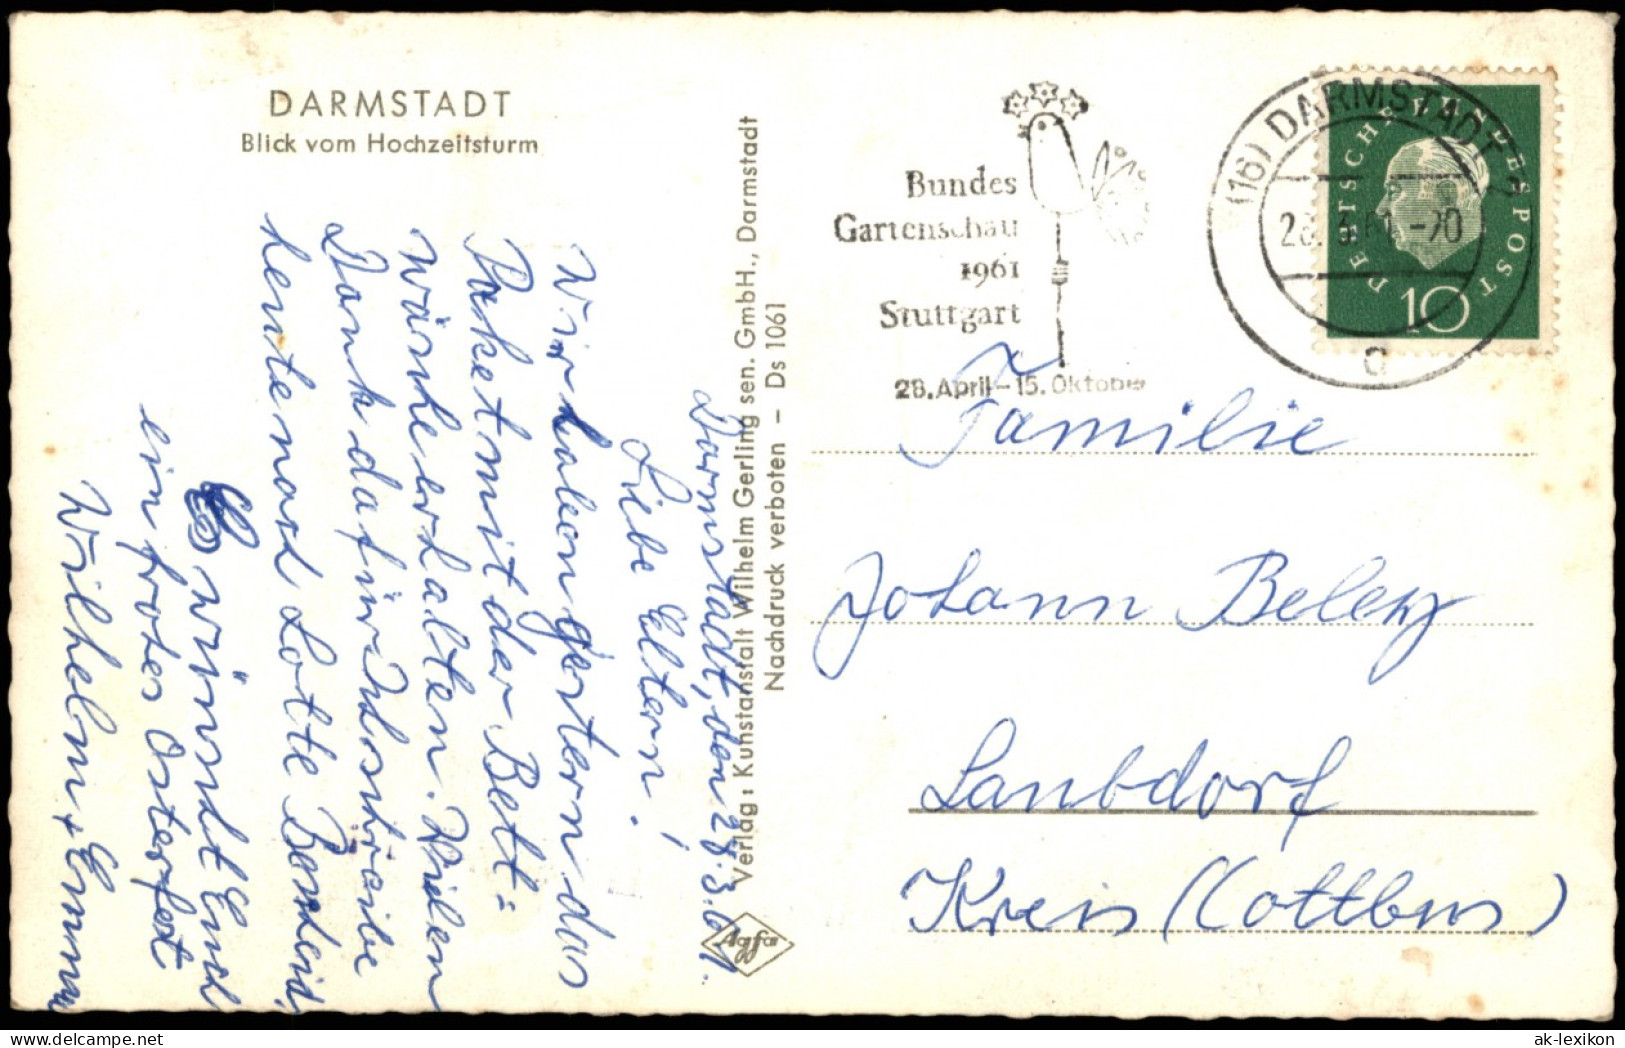 DARMSTADT
Blick vom Hochzeitsturm
Bundes
Gartenschau
1961
Stuttgart
28. April - 15. Oktober
(16) DARMSTADT 2
28.3.61.-20
a
DEUTSCHE BUNDESPOST
10
Verlag: Kunstanstalt Wilhelm Gerling sen. GmbH., Darmstadt
Nachdruck verboten - Ds 1061
Agfa
Darmstadt, den 28.3.61.
Liebe Eltern!
Wir haben gestern das
Paket mit der Bett=
wäsche erhalten. Vielen
Dank dafür. Ich schreibe
heute noch Lotte Bescheid.
Es wünscht Euch
ein frohes Osterfest
Wilhelm + Emmi
Familie
Johann
Laubdorf
Kreis (Cottbus)
ak-lexikon